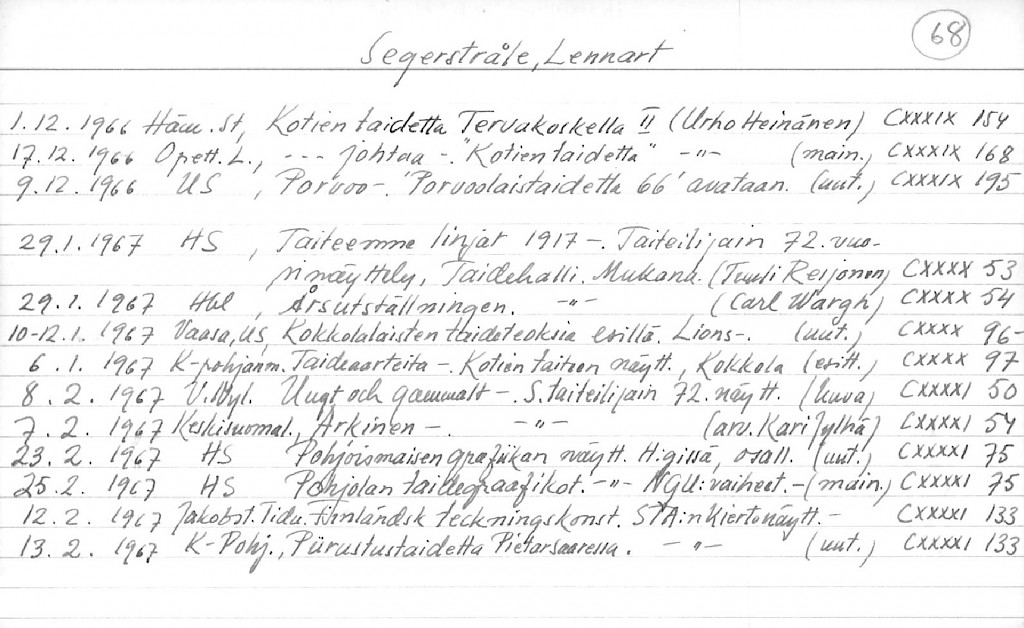 68
Segerstråle, Lennart
1.12.1966 Häm. St, Kotien taidetta Tervakoskella II (Urho Heinänen) CXXXIX 154
17.12.1966 Opett. L., --- johtaa -. "Kotien taidetta" -"- (main.) CXXXIX 168
9.12.1966 US, Porvoo-. 'Porvoolaistaidetta 66' avataan. (uut.) CXXXIX 195
29.1.1967 HS, Taiteemme linjat 1917-. Taiteilijain 72. vuo-
rinäyttely, Taidehalli. Mukana. (Tuuli Reijonen) CXXXX 53
29.1.1967 Hbl Årsutställningen. -"- (Carl Wargh) CXXXX 54
10-12.1.1967 Vaasa, US, Kokkolalaisten taideteoksia esillä. Lions-. (uut.) CXXXX 96-
6.1.1967 K-pohjanm. Taideaarteita -. Kotien taiteen näytt., Kokkola (esitt.) CXXXX 97
8.2.1967 V. Nyl. Ungt och gammalt -. S. taiteilijain 72. näytt. (kuva) CXXXXI 50
7.2.1967 Keskisuomal., Arkinen -. -"- (arv. Kari Jylhä) CXXXXI 54
23.2.1967 HS Pohjoismaisen grafiikan näytt. H:gissä, osall. (uut.) CXXXXI 75
25.2.1967 HS Pohjolan taidegraafikot. -"- NGU:vaiheet.- (main.) CXXXXI 75
12.2.1967 Jakobst. Tidn. Finländsk teckningskonst. STA:n kiertonäytt.- CXXXXI 133
13.2.1967 K-Pohj., Piirustustaidetta Pietarsaaressa. -"- (uut.) CXXXXI 133